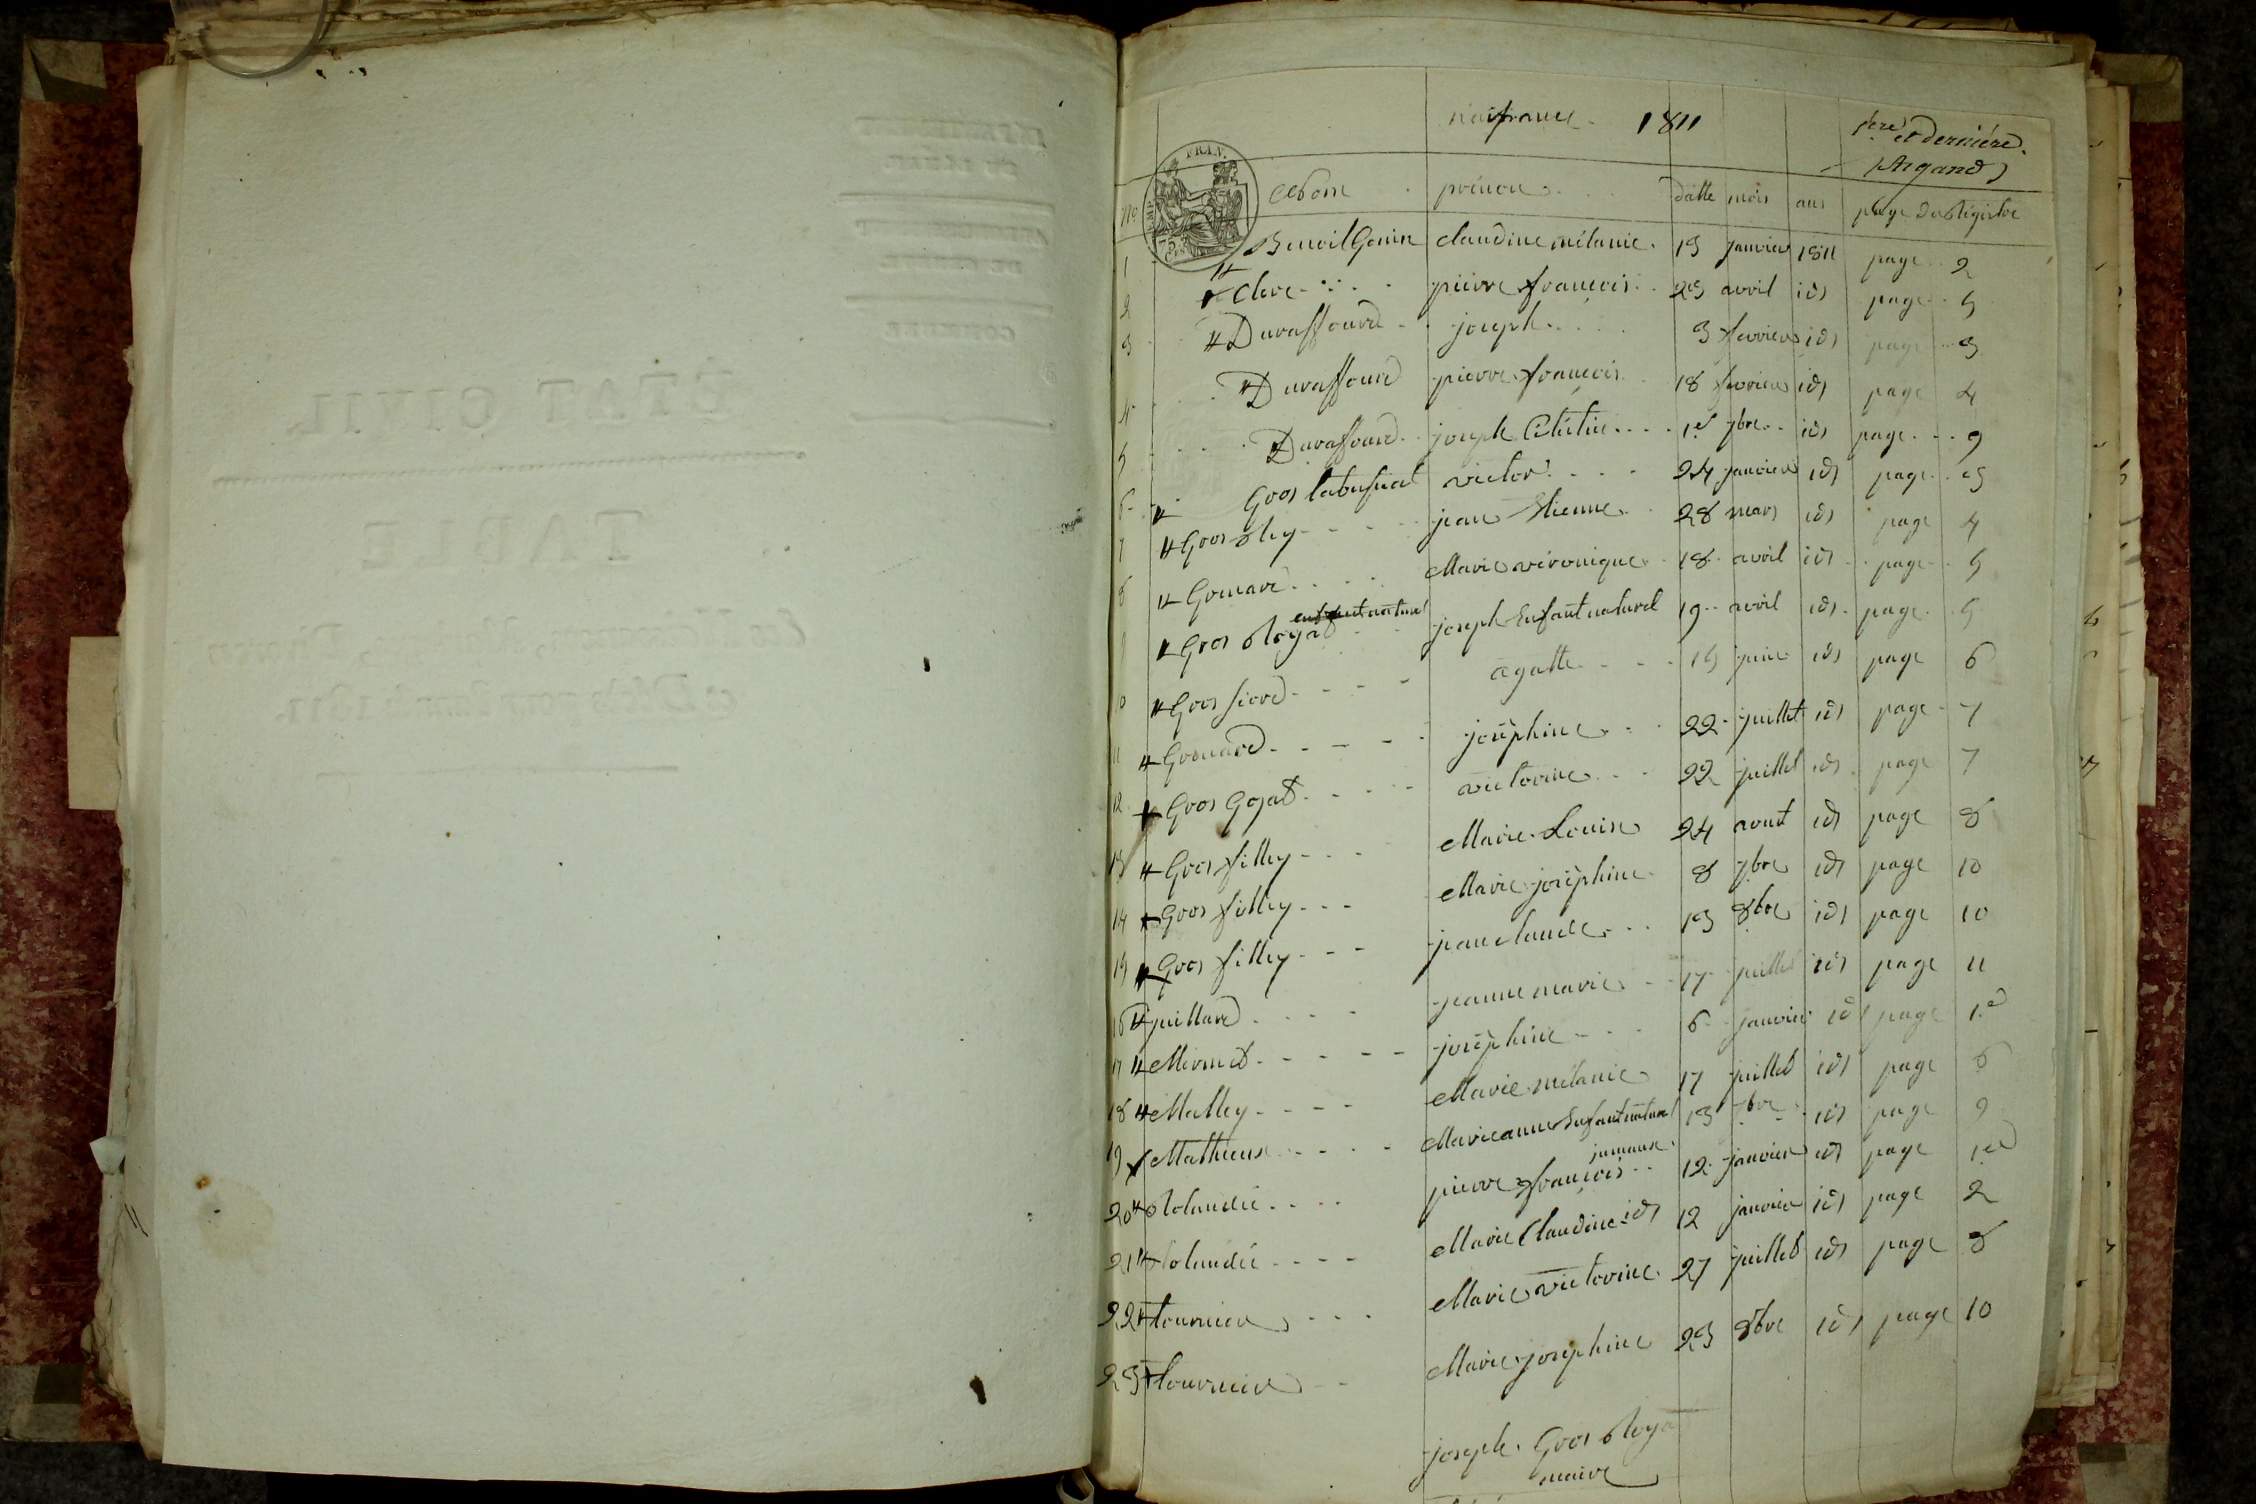 naissance 1811
1ere et dernière
Argand
No Nom prénon datte mois ans page du Régistre
1 Benoit Gonin claudine mélanie 13 janvier 1811 page 2
2 Clerc pierre francois 23 avril ids page 5
3 Duraffourd joseph 3 fevrier ids page 3
4 Duraffourd pierre francois 18 fevrier ids page 4
5 Duraffourd joseph Célistin 1er 7bre ids page 9
6 Gros victor 24 janvier ids page 3
7 Gros jean Etienne 28 mars ids page 4
8 Gromard Marie véronique 18 avril ids page 5
9 Gros Royat joseph Enfant naturel 19 avril ids page 5
10 Gros agatte 15 juin ids page 6
11 Gromard joséphine 22 juillet ids page 7
12 Gros Gojat victorine 22 juillet ids page 7
13 Gros filley Marie Louise 24 aout ids page 8
14 Gros filley Marie joséphine 8 7bre ids page 10
15 Gros filley jean claude 13 8bre ids page 10
16 juillard jeanne marie 17 juillet ids page 11
17 Mermet joséphine 6 janvier ids page 1er
18 Malley Marie mélanie 17 juillet ids page 6
19 Mathieux Marie anne Enfant naturel 13 7bre ids page 9
jumaux
20 Rolandé pierre francois 12 janvier ids page 1er
21 Rolandé Marie Claudine ids 12 janvier ids page 2
22 tournier Marie victorine 27 juillet ids page 8
23 tournier Marie joséphine 23 8bre ids page 10
joseph Gros Royat
maire